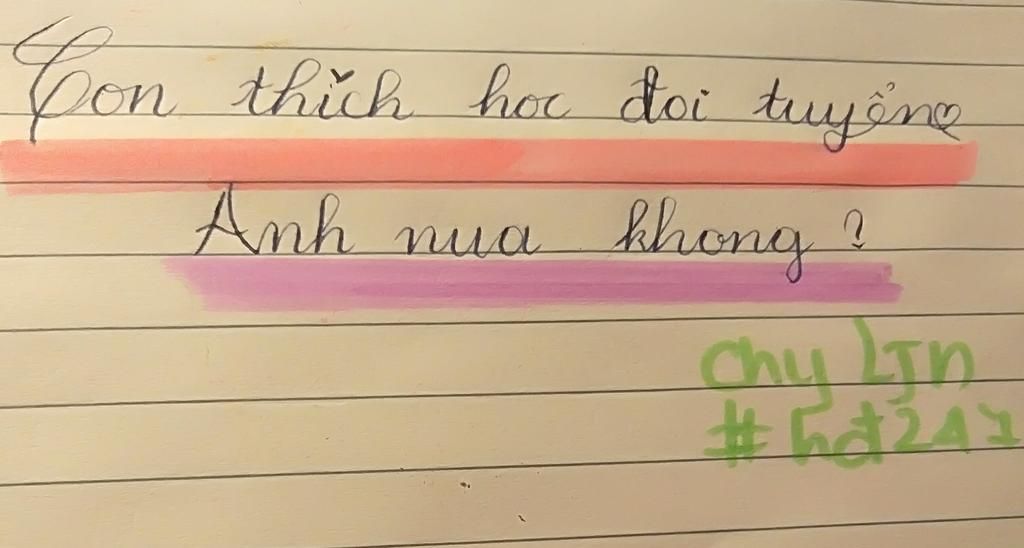 Con thích hoc đoi tuyển
Anh nua khong ?
chy LJn
#hđ247